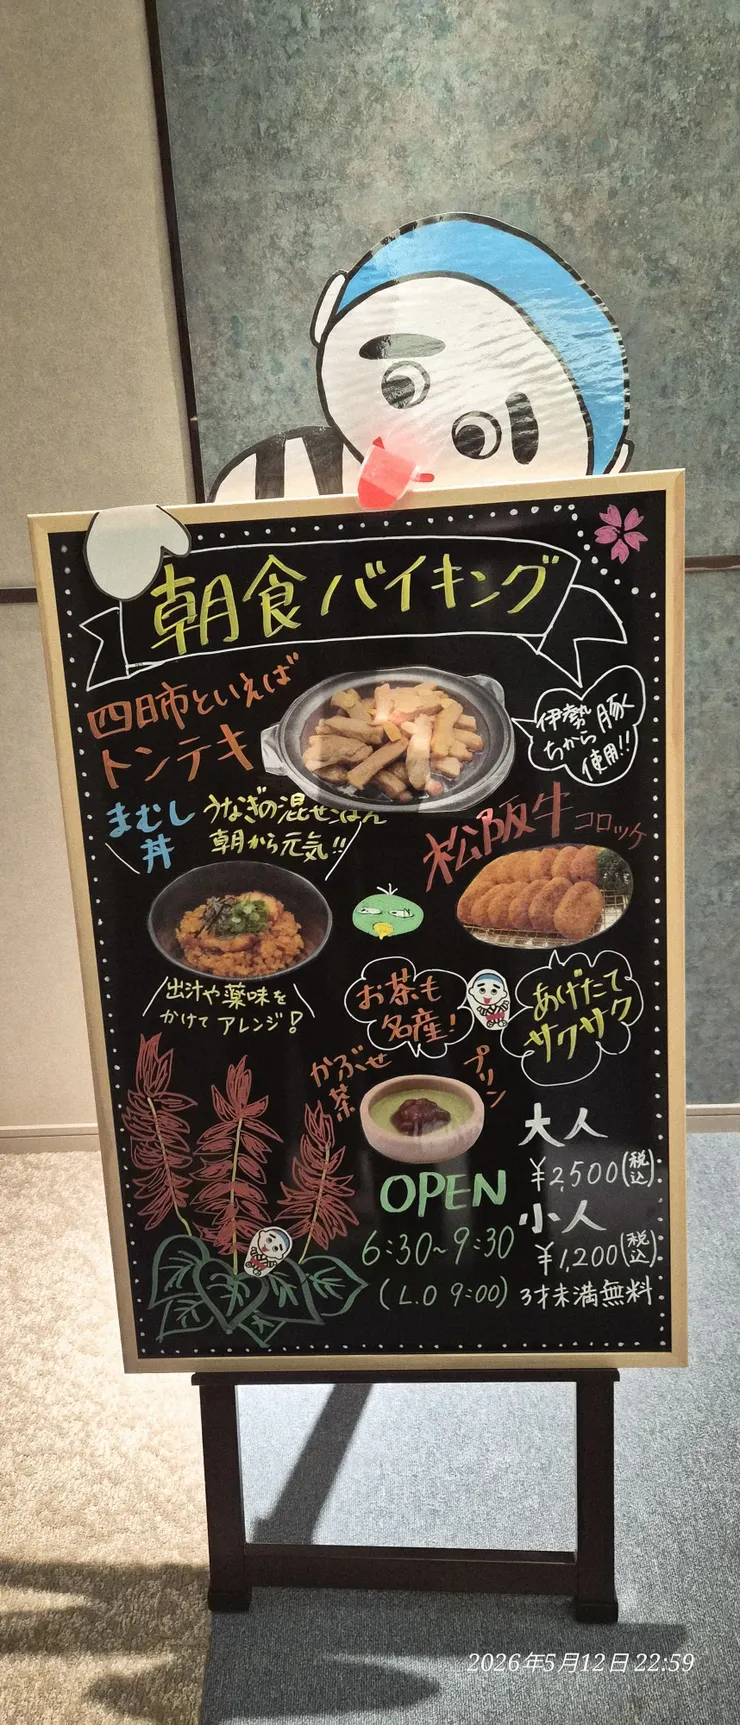 朝食バイキング
四日市といえば
トンテキ
伊勢
ちから豚
使用!!
まむし
丼
うなぎの混ぜごはん
朝から元気!!
松阪牛コロッケ
出汁や薬味を
かけてアレンジ!
お茶も
名産!
あげたて
サクサク
かぶせ
茶
プリン
大人
¥2,500(税込)
小人
¥1,200(税込)
3才未満無料
OPEN
6:30~9:30
(L.O 9:00)
2026年5月12日 22:59